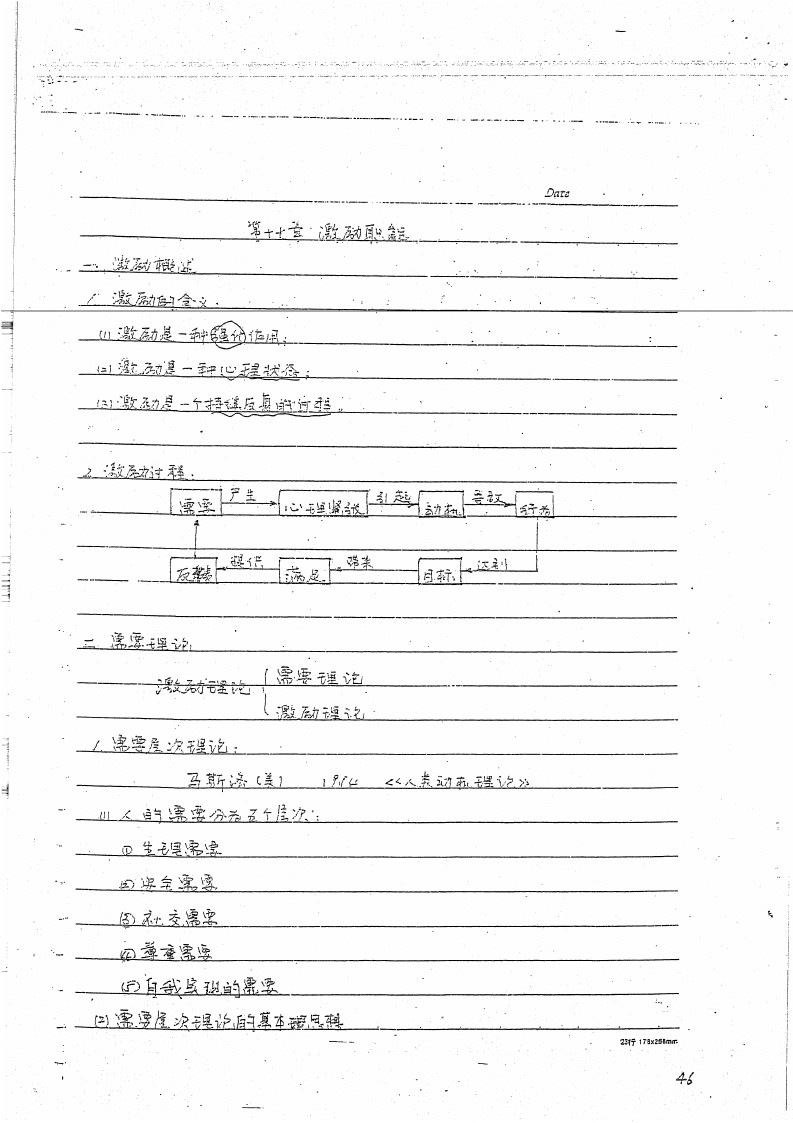 Date
第十七章 激励职能
一、激励概述
1. 激励的含义.
(1) 激励是一种强化作用;
(2) 激励是一种心理状态;
(3) 激励是一个持续反复的过程。
2. 激励过程.
需要 产生 心理紧张 引起 动机 导致 行为
反馈 提供 满足 带来 目标 达到
二 需要理论
激励理论 { 需要理论
激励理论
1. 需要层次理论:
马斯洛(美) <<人类动机理论>>
(1) 人的需要分为五个层次:
① 生理需要
② 安全需要
(3) 社交需要
(4) 尊重需要
(5) 自我实现的需要
(2) 需要层次理论的基本思想
23行 178x258mm
46